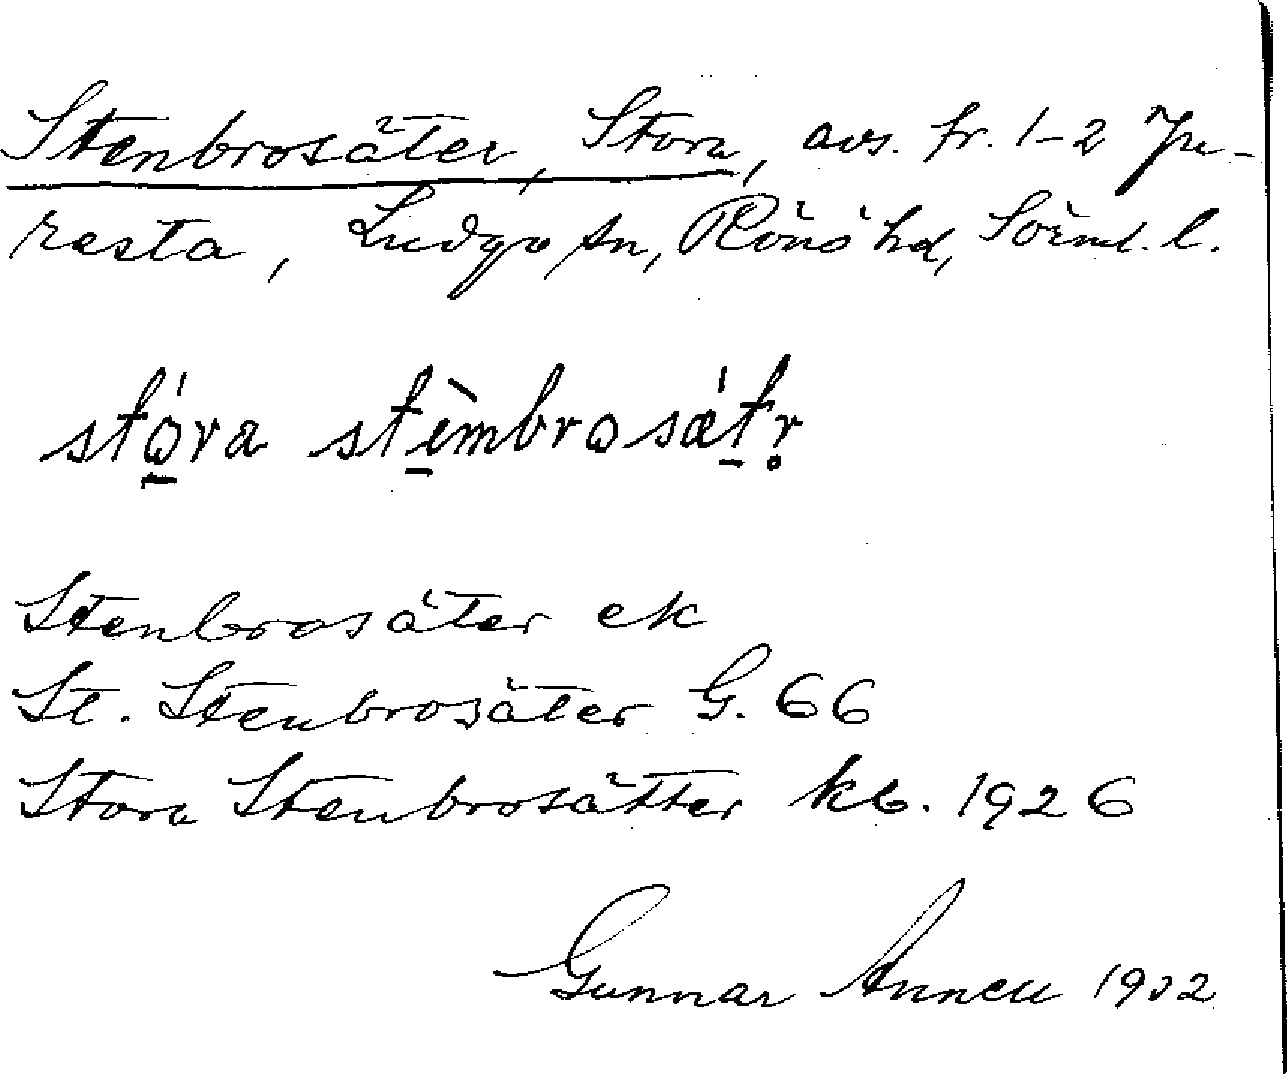 Stenbrosäter, Stora, avs. fr. 1-2
rasta, Ludgo sn, Rönö hd, Sörml. l.
stóra stèmbrosätr
Stenbrosäter ek
St. Stenbrosäter G. 66
Stora Stenbrosätter kb. 1926
Gunnar